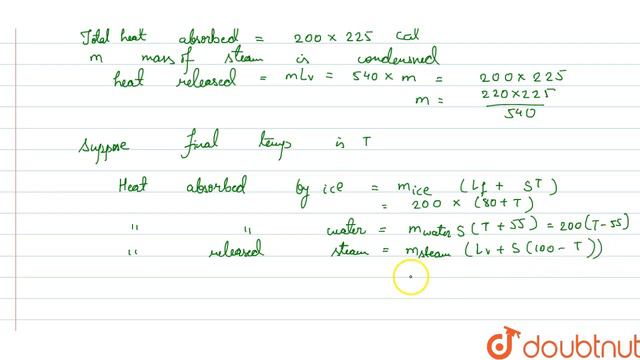 Total heat absorbed = 200 × 225 cal
m mass of steam is condensned
heat released = mLv = 540 × m = 200 × 225
m = 220 × 225
540
Suppose final temp is T
Heat absorbed by ice = mice (Lf + ST)
= 200 × (80 + T)
" " water = mwater S (T + 55) = 200 (T - 55)
" released steam = msteam (Lv + S (100 - T))
doubtnut